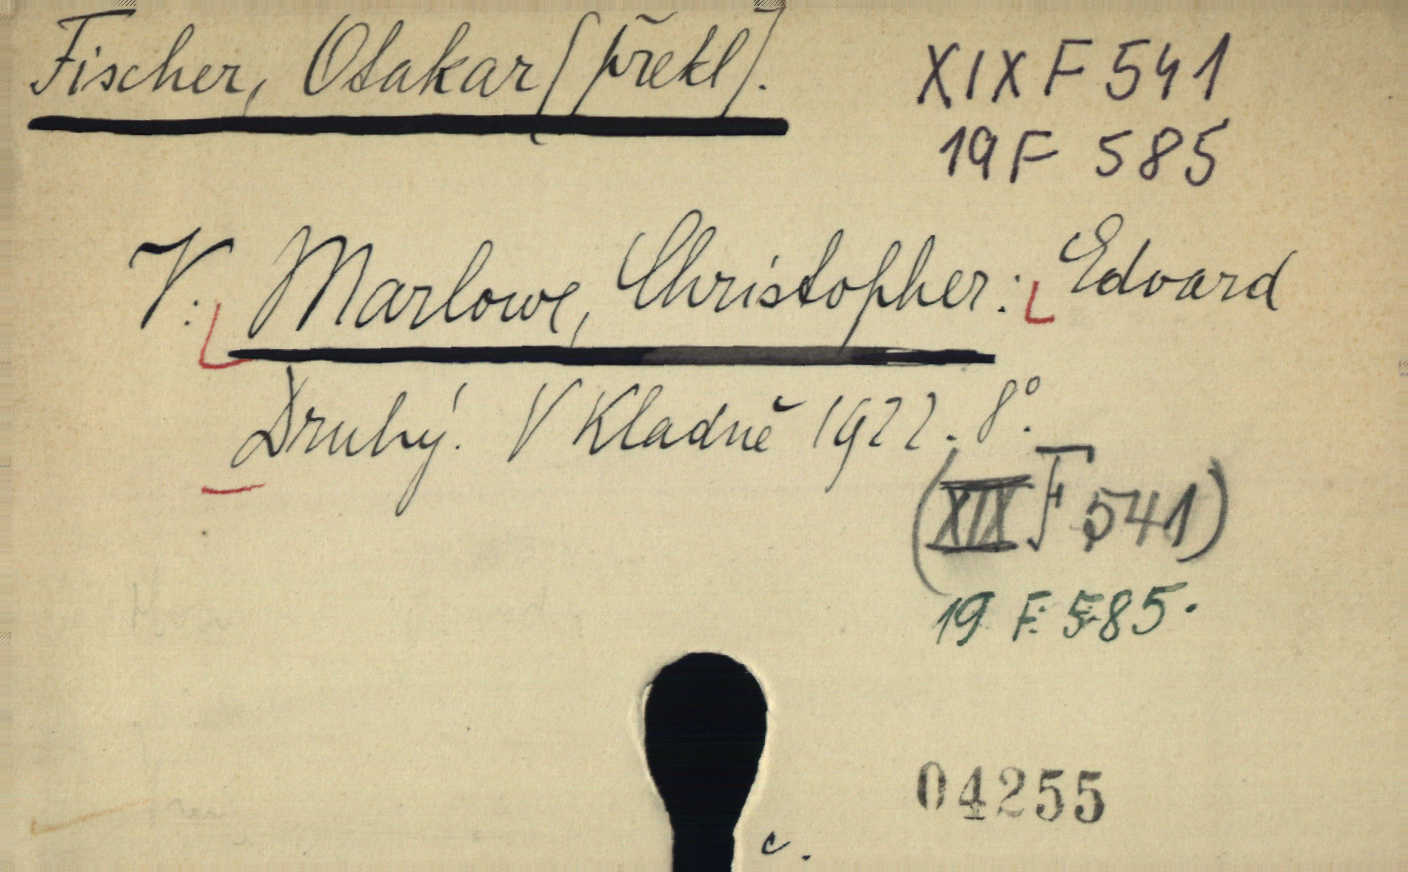 Fischer, Otakar [překl].
XIX F 541
19 F 585
V: Marlowe, Christopher: Edvard
Druhý. V Kladně 1922. 8°.
(XIX F 541)
19 F 585.
04255
c.